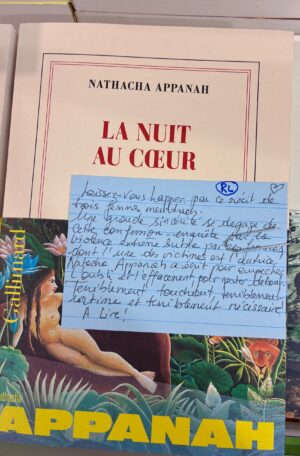 NATHACHA APPANAH
LA NUIT
AU CŒUR
RL
Laissez-vous happer par ce récit de
trois femmes meurtries.
Une grande sincérité se dégage de
cette confession-enquête sur la
violence extrême subie par ces femmes
dont l'une des victimes est l'auteur.
Natacha Appanah écrit pour empêcher
l'oubli et l'effacement, pour rester debout.
Terriblement touchant, terriblement
intime et terriblement nécessaire!
A lire!
Gallimard
APPANAH